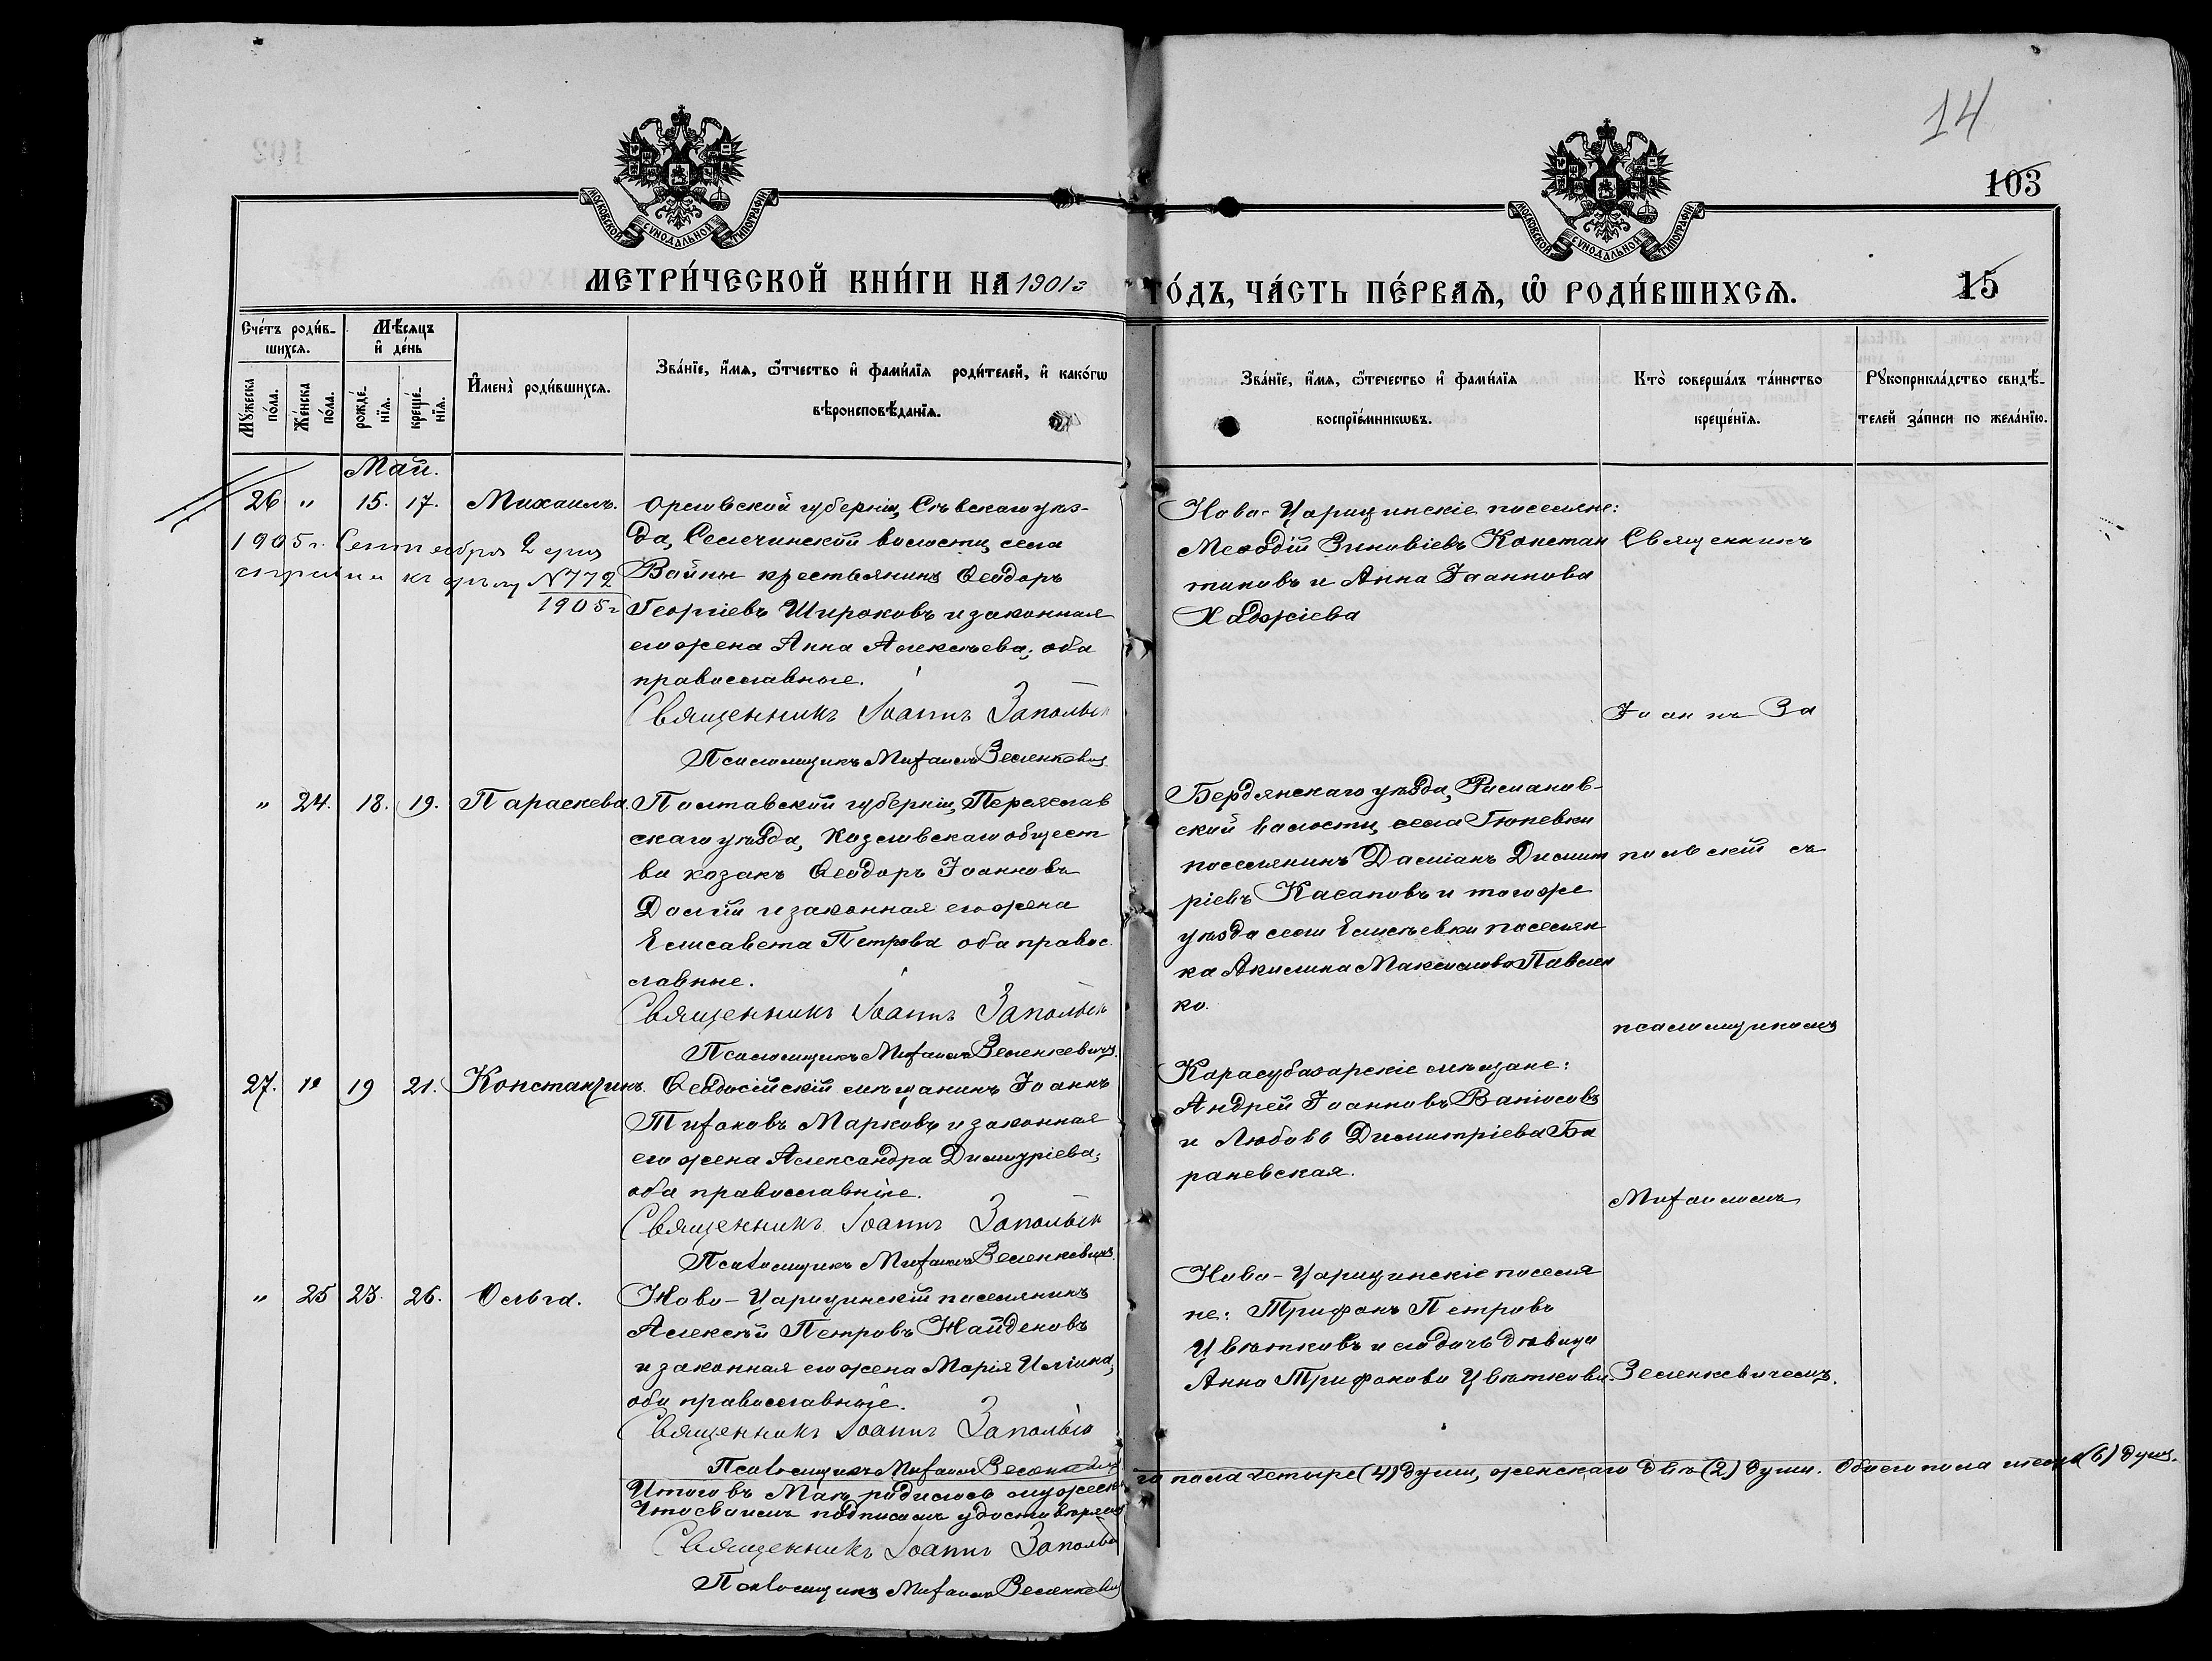 14
103
МОСКОВСКОЙ СѴНОДАЛЬНОЙ ТИПОГРАФІИ
МОСКОВСКОЙ СѴНОДАЛЬНОЙ ТИПОГРАФІИ
МЕТРИ́ЧЕСКОЙ КНИ́ГИ НА 1901 г
ГО́ДЪ, ЧА́СТЬ ПЕ́РВАѦ, Ѡ҆ РОДИ́ВШИХСѦ.
15
Сче́тъ роди́в-
шихсѧ.
Мꙋ́жеска
по́ла.
Же́нска
по́ла.
Мѣ́сѧцъ
и҆ де́нь
рожде́-
нїѧ.
креще́-
нїѧ.
И҆мена̀ роди́вшихсѧ.
Зва́нїе, и҆́мѧ, ѻ҆́тчество и҆ фами́лїѧ роди́телей, и҆ како́гѡ
вѣроисповѣ́данїѧ.
Зва́нїе, и҆́мѧ, ѻ҆те́чество и҆ фами́лїѧ
воспрїе́мникѡвъ.
Кто̀ соверша́лъ та́инство
креще́нїѧ.
Рꙋкоприкла́дство свидѣ́-
телей за́писи по жела́нїю.
Май.
26 " 15. 17. Михаилъ.
1905 г. Сентября 2 дня
справки къ дѣлу №772
1905 г
Орловской губерніи, Сѣвскаго уѣз-
да, Селечинской волости, села
Войны крестьянинъ Ѳеодоръ
Георгіевъ Широковъ и законная
его жена Анна Алексѣева; оба
православные.
Священникъ Іоаннъ Запольск
Псаломщикъ Михаилъ Зеленкевич
Ново-Царицинскіе поселяне:
Меѳодій Зиновіевъ Констан
тиновъ и Анна Іоаннова
Хаджіева
Священникъ
Іоаннъ За
" 24. 18. 19. Параскева.
Полтавской губерніи, Переяслав
скаго уѣзда, Козловскаго общест
ва козакъ Ѳеодоръ Іоанновъ
Долгій и законная его жена
Елисавета Петрова оба правос
лавные.
Священникъ Іоаннъ Запольск
Псаломщикъ Михаилъ Зеленкевичъ.
Бердянскаго уѣзда, Романов-
ской волости, села Гюневки
поселянинъ Даміанъ Димит
ріевъ Касаповъ и того же
уѣзда села Елисѣевки поселян
ка Акилина Максимова Павлен
ко.
польскій съ
псаломщикомъ
27. " 19 21. Константинъ.
Ѳеодосійскій мѣщанинъ Іоаннъ
Тихоновъ Марковъ и законная
его жена Александра Димитріева;
оба православные.
Священникъ Іоаннъ Запольск
Псаломщикъ Михаилъ Зеленкевичъ.
Карасубазарскіе мѣщане:
Андрей Іоанновъ
и Любовь Димитріева Ба
раневская.
Михаиломъ
" 25 23. 26. Ольга.
Ново-Царицинскій поселянинъ
Алексѣй Петровъ Найденовъ
и законная его жена Марія Иліина;
оба православные.
Священникъ Іоаннъ Запольск
Псаломщикъ Михаилъ Зеленкевич
Ново-Царицинскіе поселя
не: Трифонъ Петровъ
Цвѣтковъ и дочь дѣвица
Анна Трифонова Цвѣткова.
Зеленкевичемъ.
Итого въ Маѣ родилось мужеска
го пола четыре (4) души, женскаго двѣ (2) души. Обоего пола шесть (6) душъ.
Что своимъ подписомъ удостовѣряемъ
Священникъ Іоаннъ Запольск
Псаломщикъ Михаилъ Зеленкевич